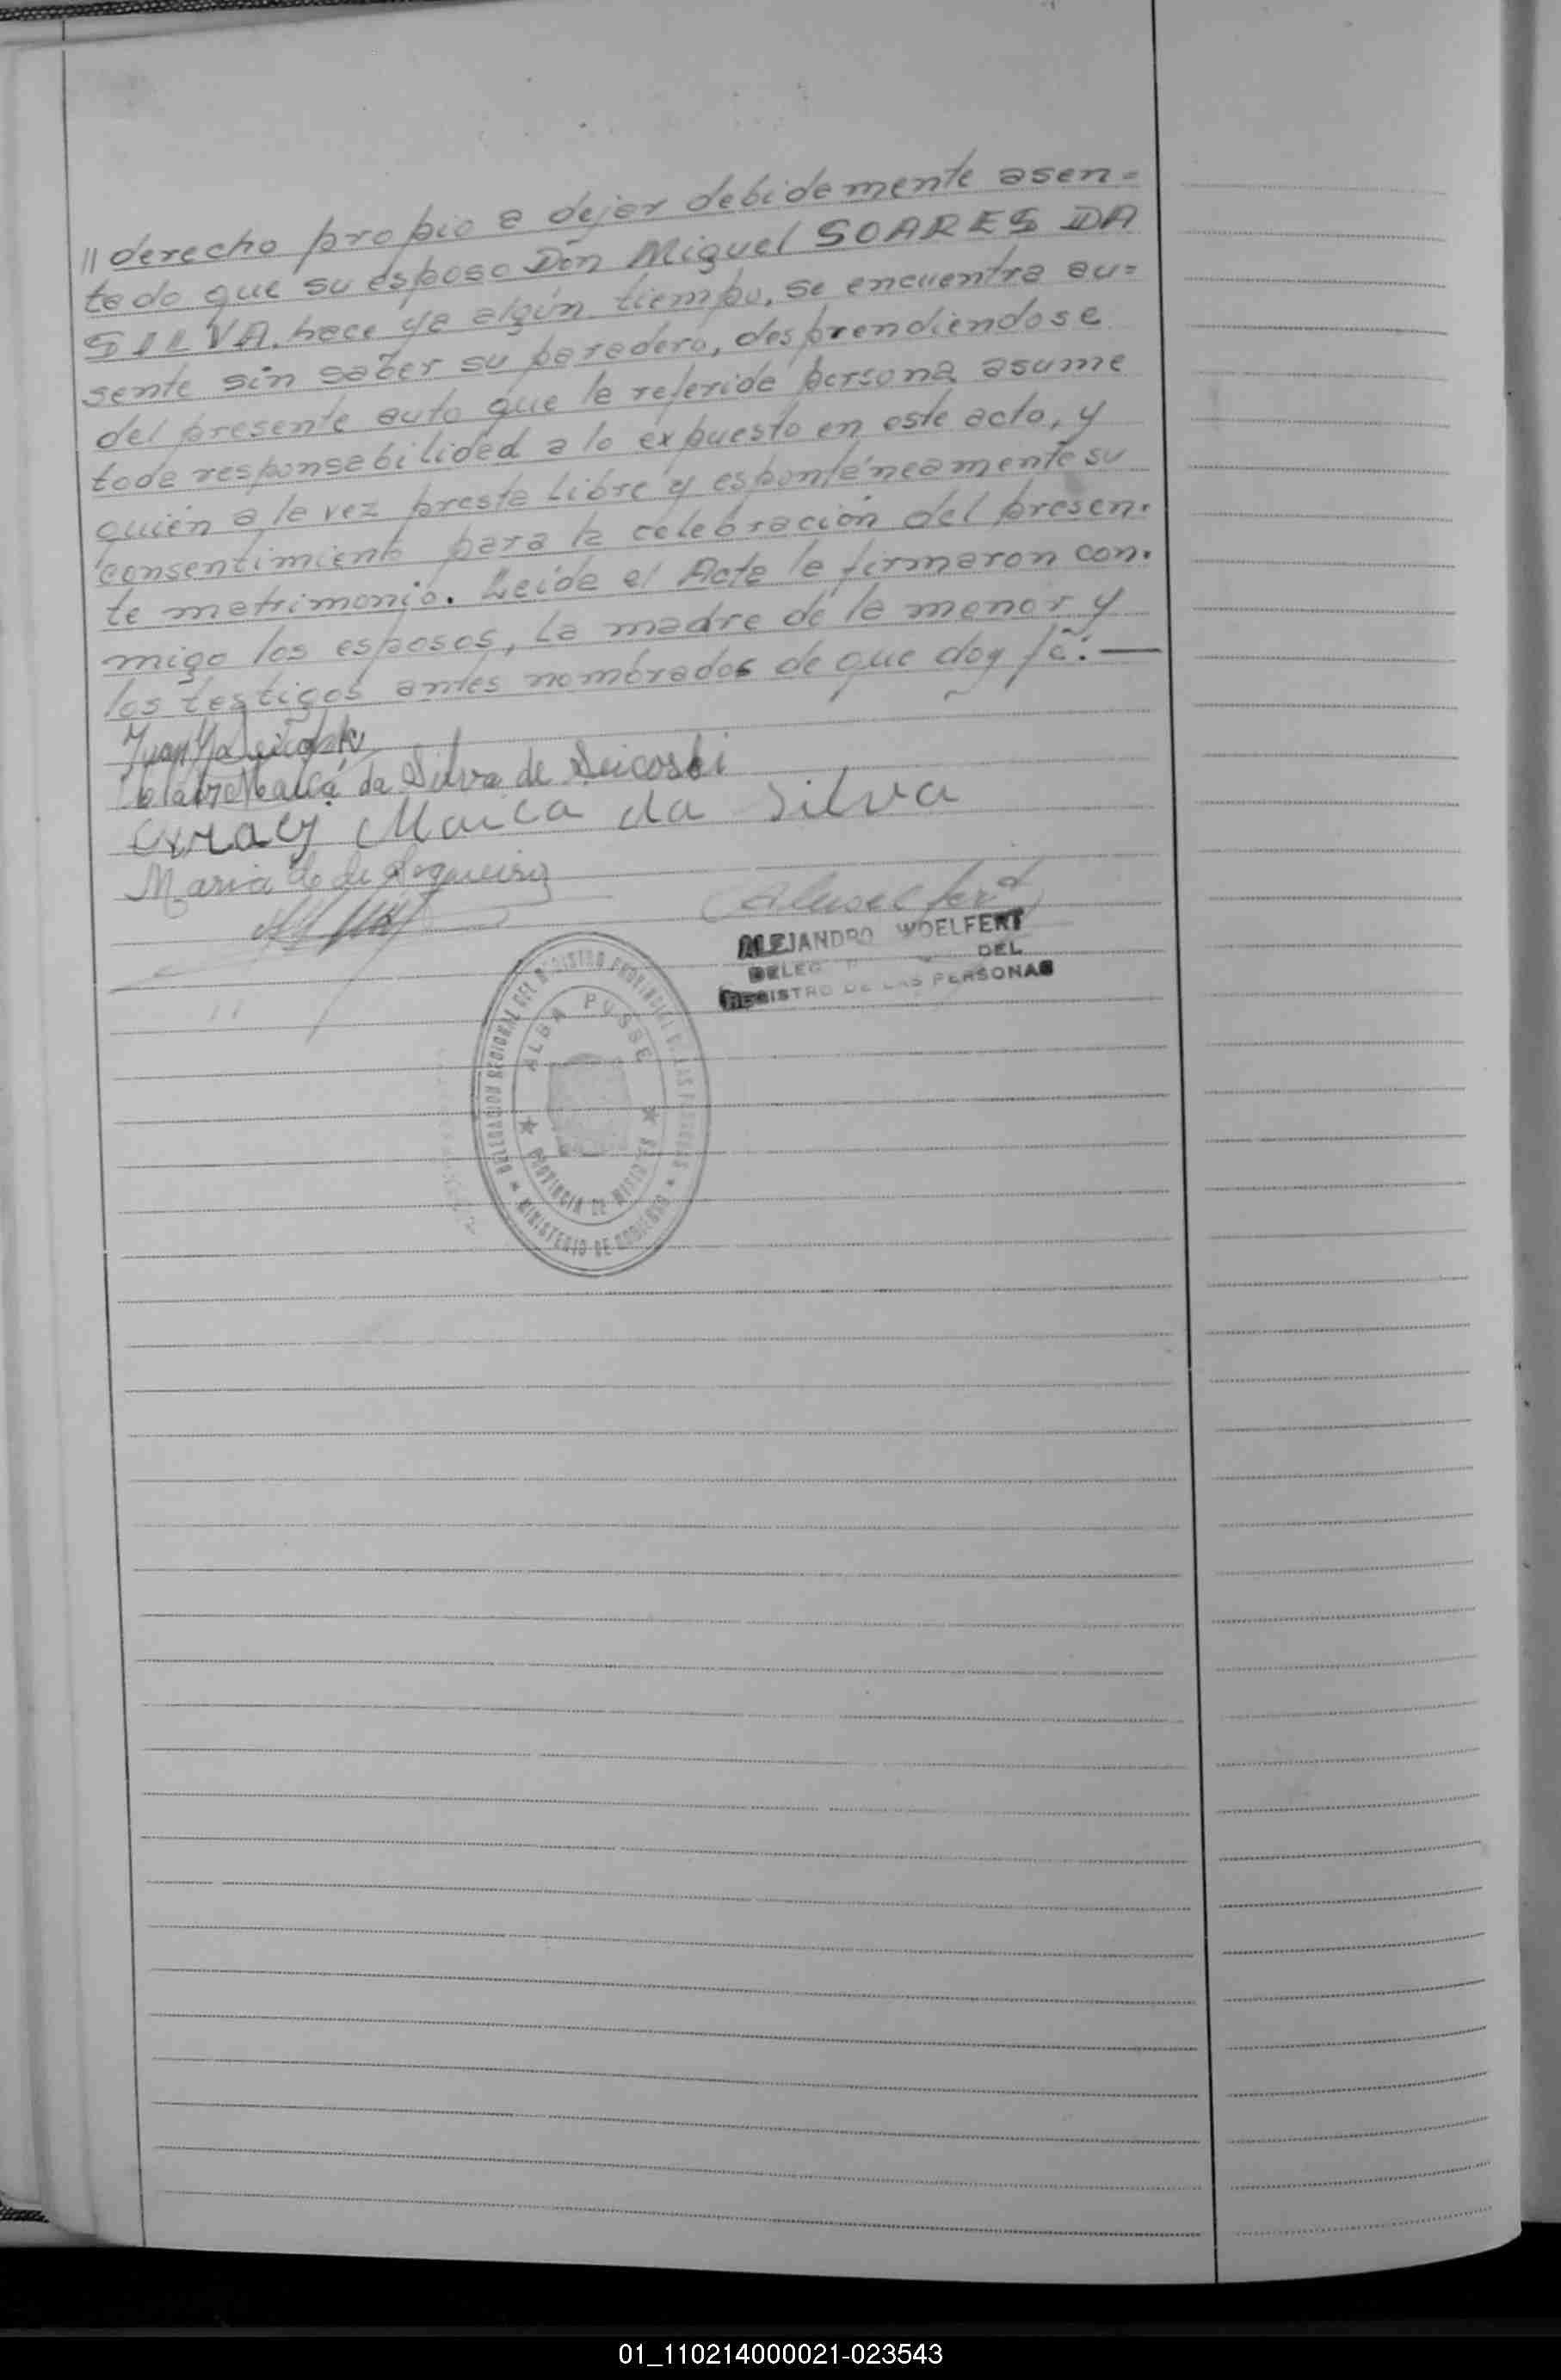 // derecho propio a dejar debidamente asen=
tado que su esposo Don Miguel SOARES DA
SILVA, hace ya algún tiempo, se encuentra au=
sente sin saber su paradero, desprendiendose
del presente auto que la referida persona asume
toda responsabilidad a lo expuesto en este acto, y
quién a la vez presta libre y espontáneamente su
consentimiento para la celebración del presen-
te matrimonio. Leída el Acta la firmaron con-
migo los esposos, la madre de la menor y
los testigos antes nombrados de que doy fé.—
Juan
da Silva de Seicoski
Maica da Silva
Maria de Siqueira
ALEJANDRO WOELFERT
DELEG DEL
REGISTRO DE LAS PERSONAS
DELEGACION REGIONAL DEL REGISTRO PROVINCIAL DE LAS PERSONAS
ALBA POSSE
PROVINCIA DE MISIONES
MINISTERIO DE GOBIERNO
01_110214000021-023543